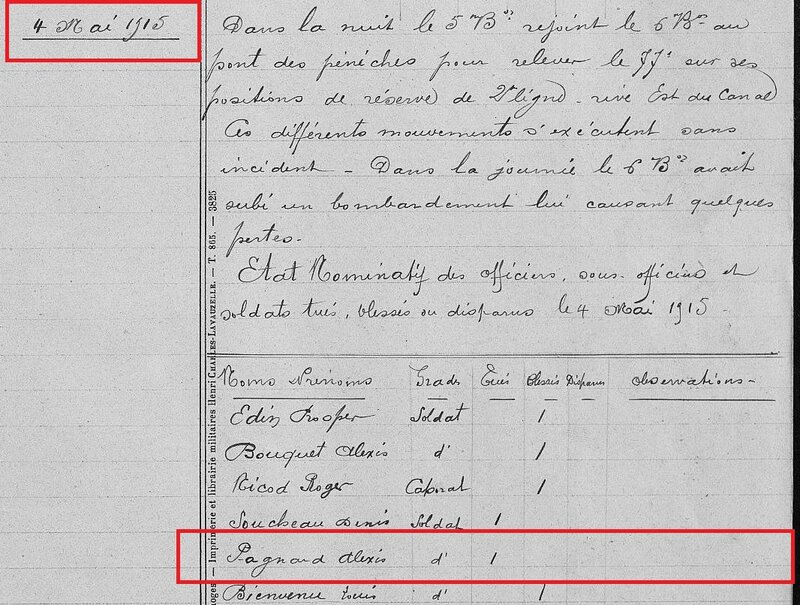 4 Mai 1915
Dans la nuit le 5 Bon rejoint le 6 Bon au
pont des péniches pour relever le 77e sur ses
positions de réserve de 2e ligne rive Est du Canal
Ces différents mouvements s'exécutent sans
incident - Dans la journée le 6 Bon avait
subi un bombardement lui causant quelques
pertes.
Etat Nominatif des officiers, sous-officiers et
soldats tués, blessés ou disparus le 4 Mai 1915.
Noms Prénoms Grades Tués Blessés Disparus Observations
Edin Prosper Soldat 1
Bouquet Alexis d° 1
Nicod Roger Caporal 1
Soucheau Denis Soldat 1
Pagnard Alexis d° 1
Bienvenu Louis d° 1
Imprimerie et librairie militaires Henri CHARLES-LAVAUZELLE. — T. 865. — 3825